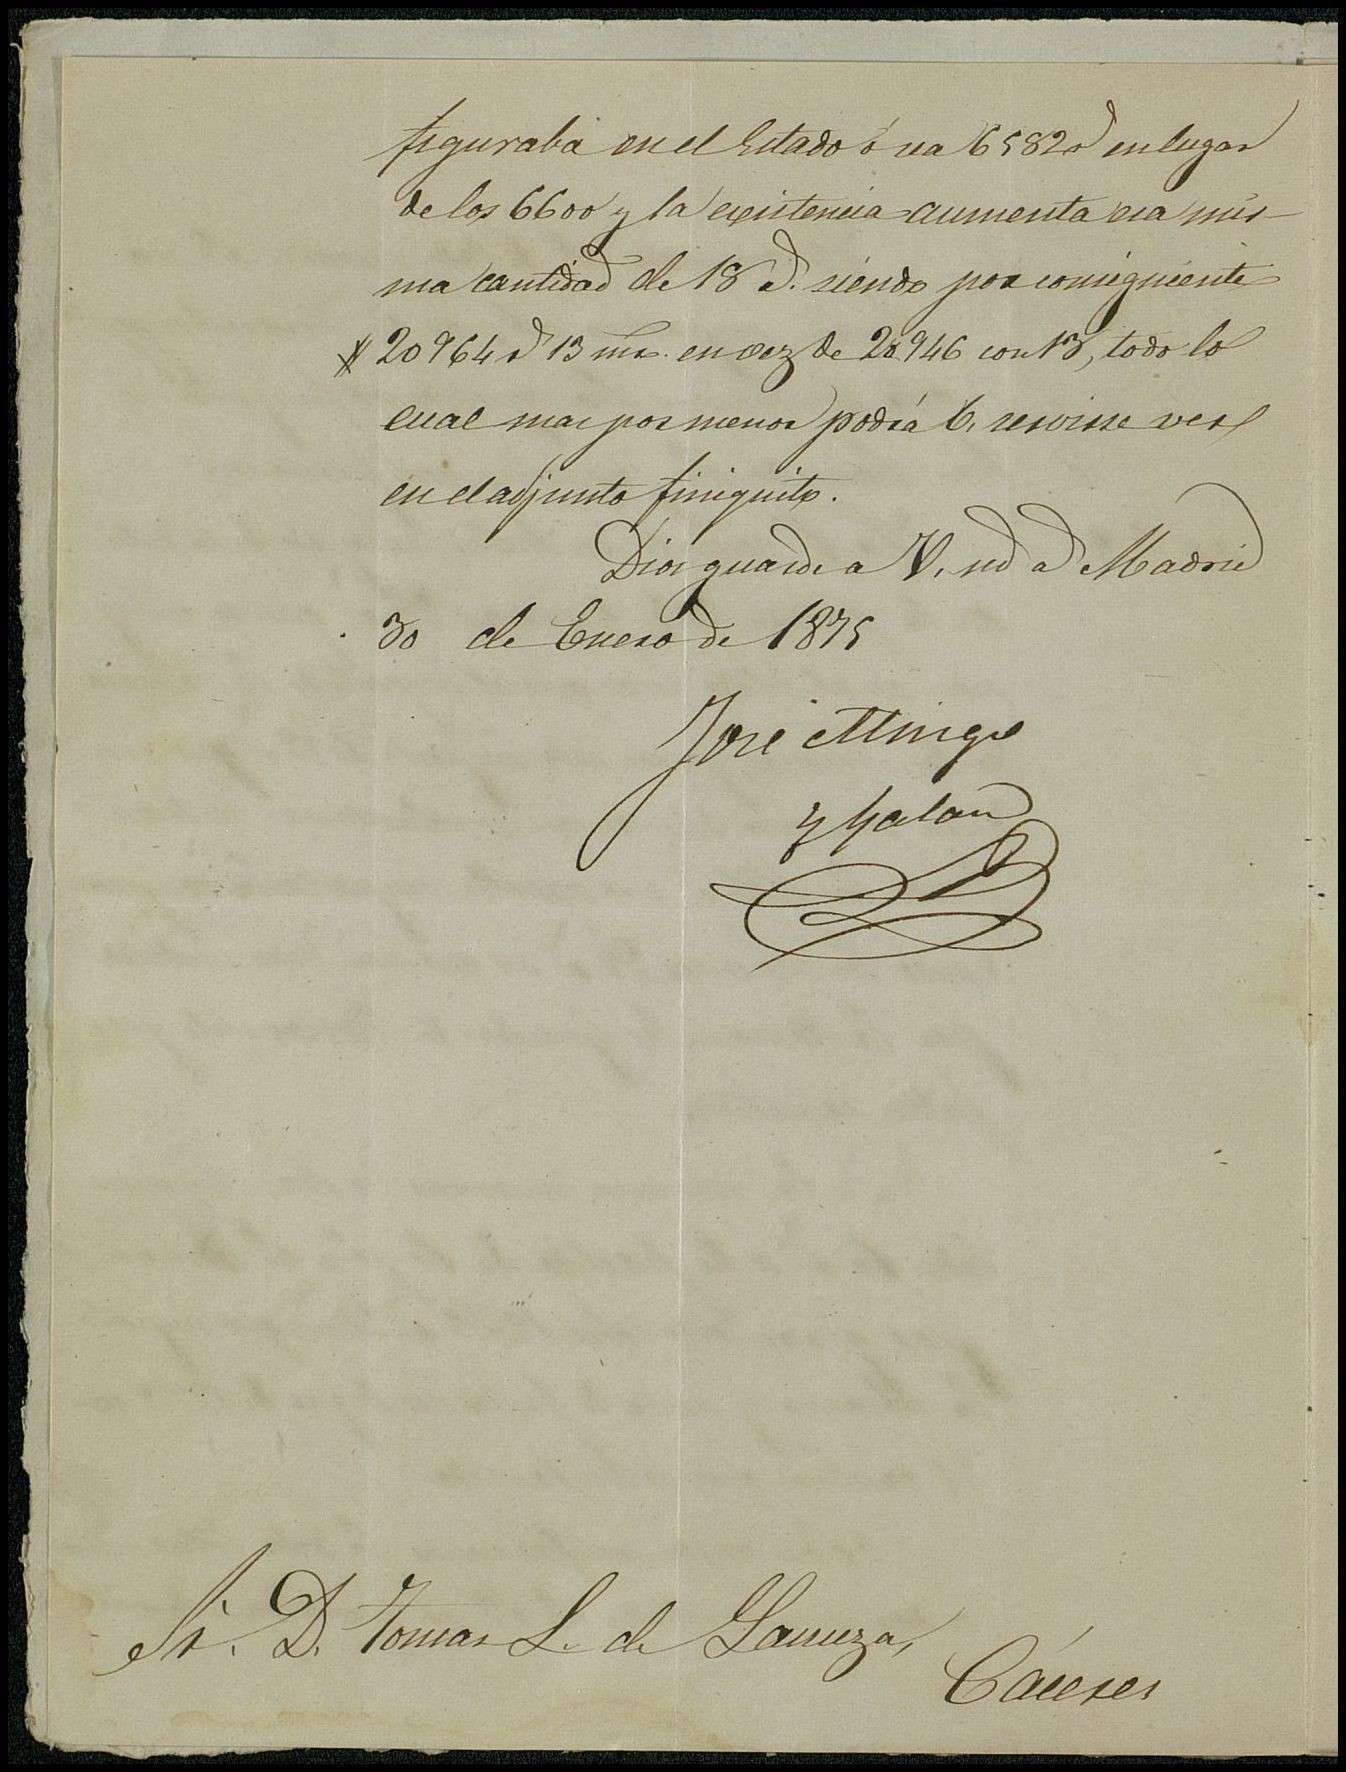 figuraba en el Estado ó sea 6582 rˢ en lugar
de los 6600 y la existencia aumenta esa mis-
ma cantidad de 18 rˢ. siendo por consiguiente
20964 rˢ 13 mrs. en vez de 20946 con 13, todo lo
cual mas por menor podrá V. servirse ver
en el adjunto finiquito.
Dios guarde a V. m.ˢ a.ˢ Madrid
30 de Enero de 1875
José Mingo
y Galan
Sr. D. Tomas L. de
Cáceres